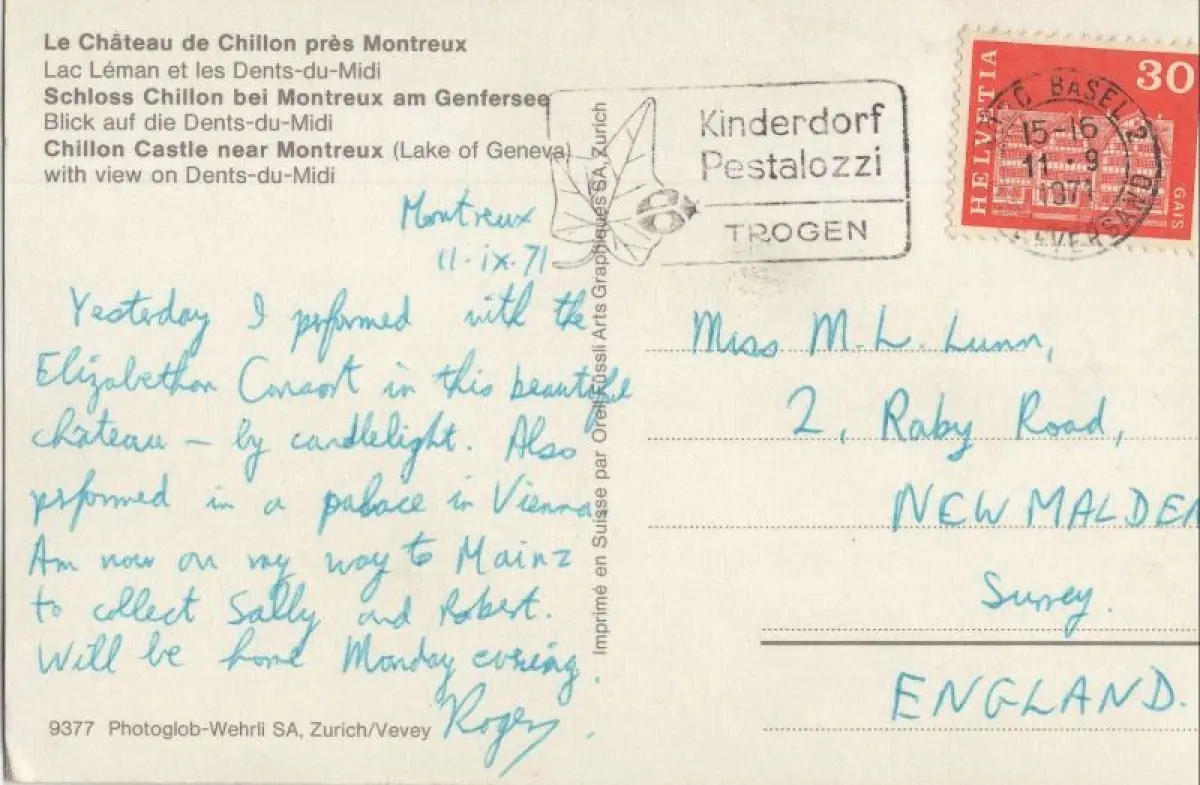 Le Château de Chillon près Montreux
Lac Léman et les Dents-du-Midi
Schloss Chillon bei Montreux am Genfersee
Blick auf die Dents-du-Midi
Chillon Castle near Montreux (Lake of Geneva)
with view on Dents-du-Midi
Montreux
11.ix.71
Yesterday I performed with the
Elizabethan Consort in this beautiful
château – by candlelight. Also
performed in a palace in Vienna.
Am now on my way to Mainz
to collect Sally and Robert.
Will be home Monday evening.
Roger.
9377 Photoglob-Wehrli SA, Zurich/Vevey
Imprimé en Suisse par Orell Füssli Arts Graphiques SA, Zurich
Kinderdorf
Pestalozzi
TROGEN
HELVETIA
30
GAIS
BASEL 2
15-16
11.9
1971
Miss M.L. Lunn,
2, Raby Road,
NEW MALDEN
Surrey.
ENGLAND.